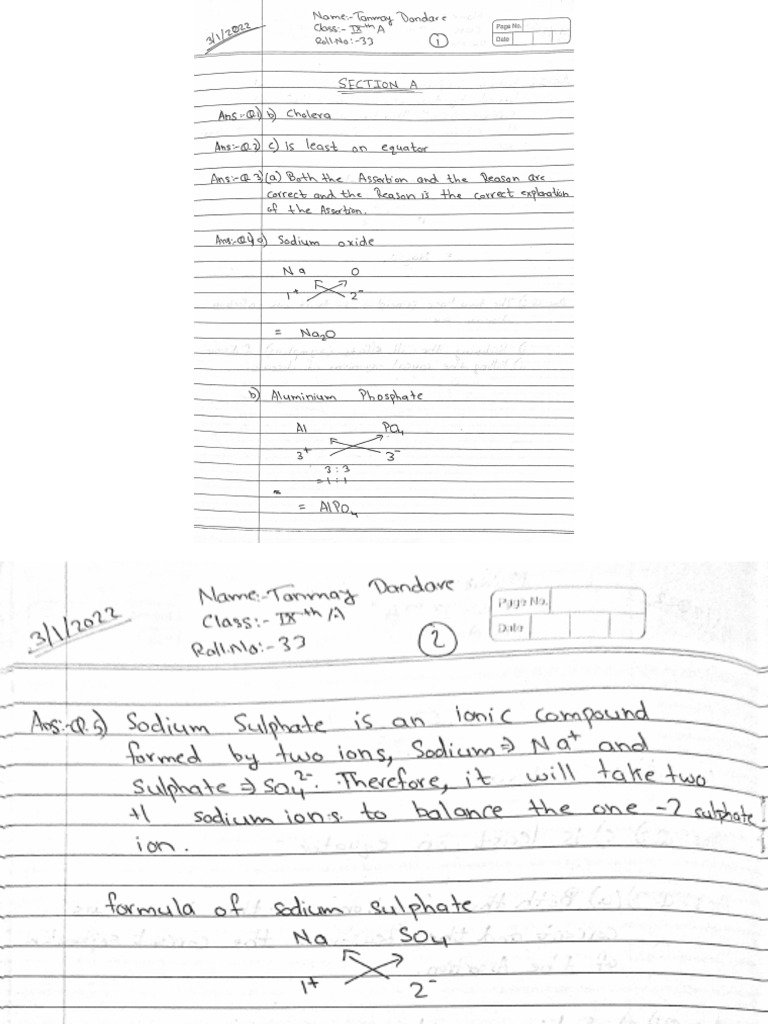 3/1/2022
Name:- Tanmay Dandare
Class:- IXth A
Roll.No:-33
1
Page No.
Date
SECTION A
Ans:-Q1) b) Cholera
Ans:-Q.2) c) Is least on equator
Ans:-Q 3) (a) Both the Assertion and the Reason are
correct and the Reason is the correct explanation
of the Assertion.
Ans:-Q4) a) Sodium oxide
Na O
1+ 2-
= Na2O
b) Aluminium Phosphate
Al PO4
3+ 3-
3:3
=1:1
= AlPO4
3/1/2022
Name:-Tanmay Dandare
Class:- IXth/A
Roll.No:-33
2
Page No.
Date
Ans:-Q.5) Sodium Sulphate is an ionic compound
formed by two ions, Sodium⇒ Na+ and
sulphate ⇒ SO4 2-. Therefore, it will take two
+1 sodium ions to balance the one -2 sulphate
ion.
formula of sodium sulphate
Na SO4
1+ 2-